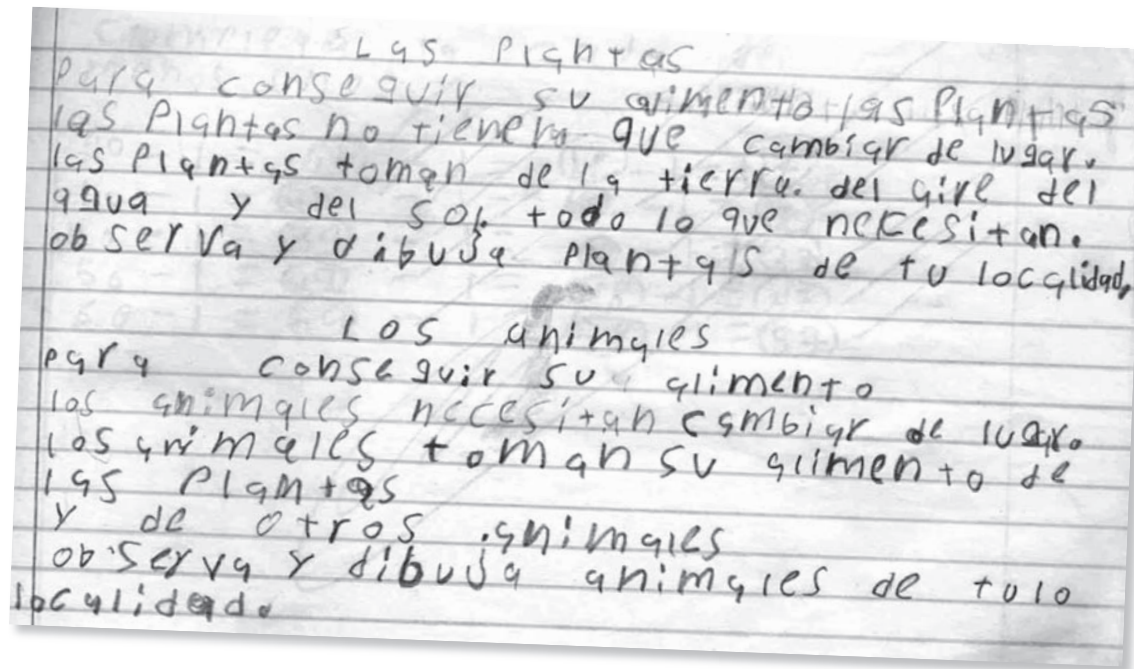 Las Plantas
Para conseguir su alimento las Plantas
las Plantas no tienen que cambiar de lugar.
las Plantas toman de la tierra. del aire del
agua y del sol. todo lo que necesitan.
observa y dibuja Plantas de tu localidad,
Los animales
para conseguir su alimento
los animales necesitan cambiar de lugar.
los animales toman su alimento de
las Plantas
y de otros animales
observa y dibuja animales de tulo
localidad.